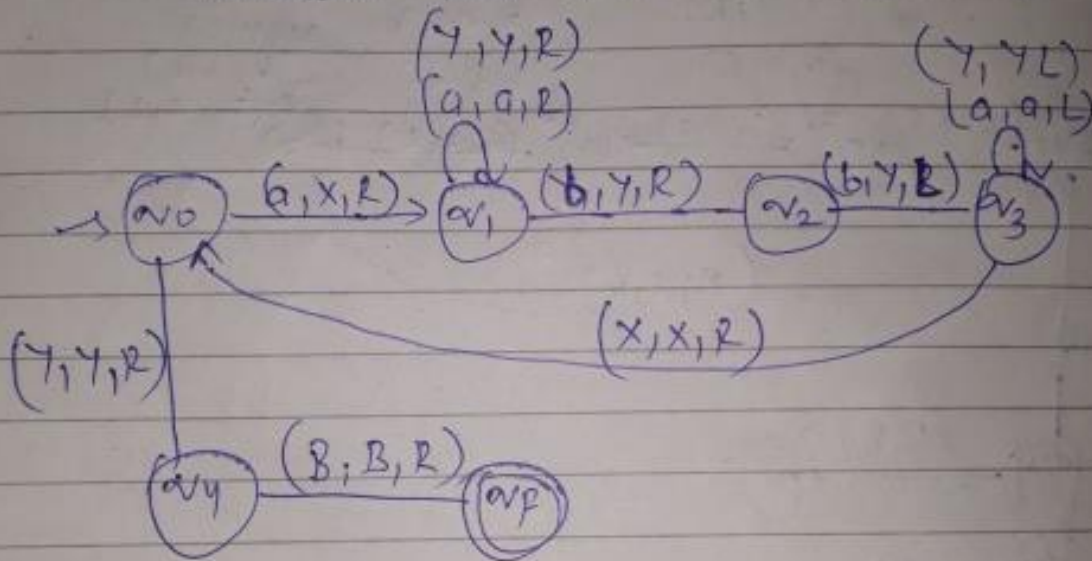 (Y, Y, R)
(a, a, R)
(Y, Y L)
(a, a, L)
q0
(a, X, R)
q1
(b, Y, R)
q2
(b, Y, L)
q3
(X, X, R)
(Y, Y, R)
q4
(B, B, R)
qf